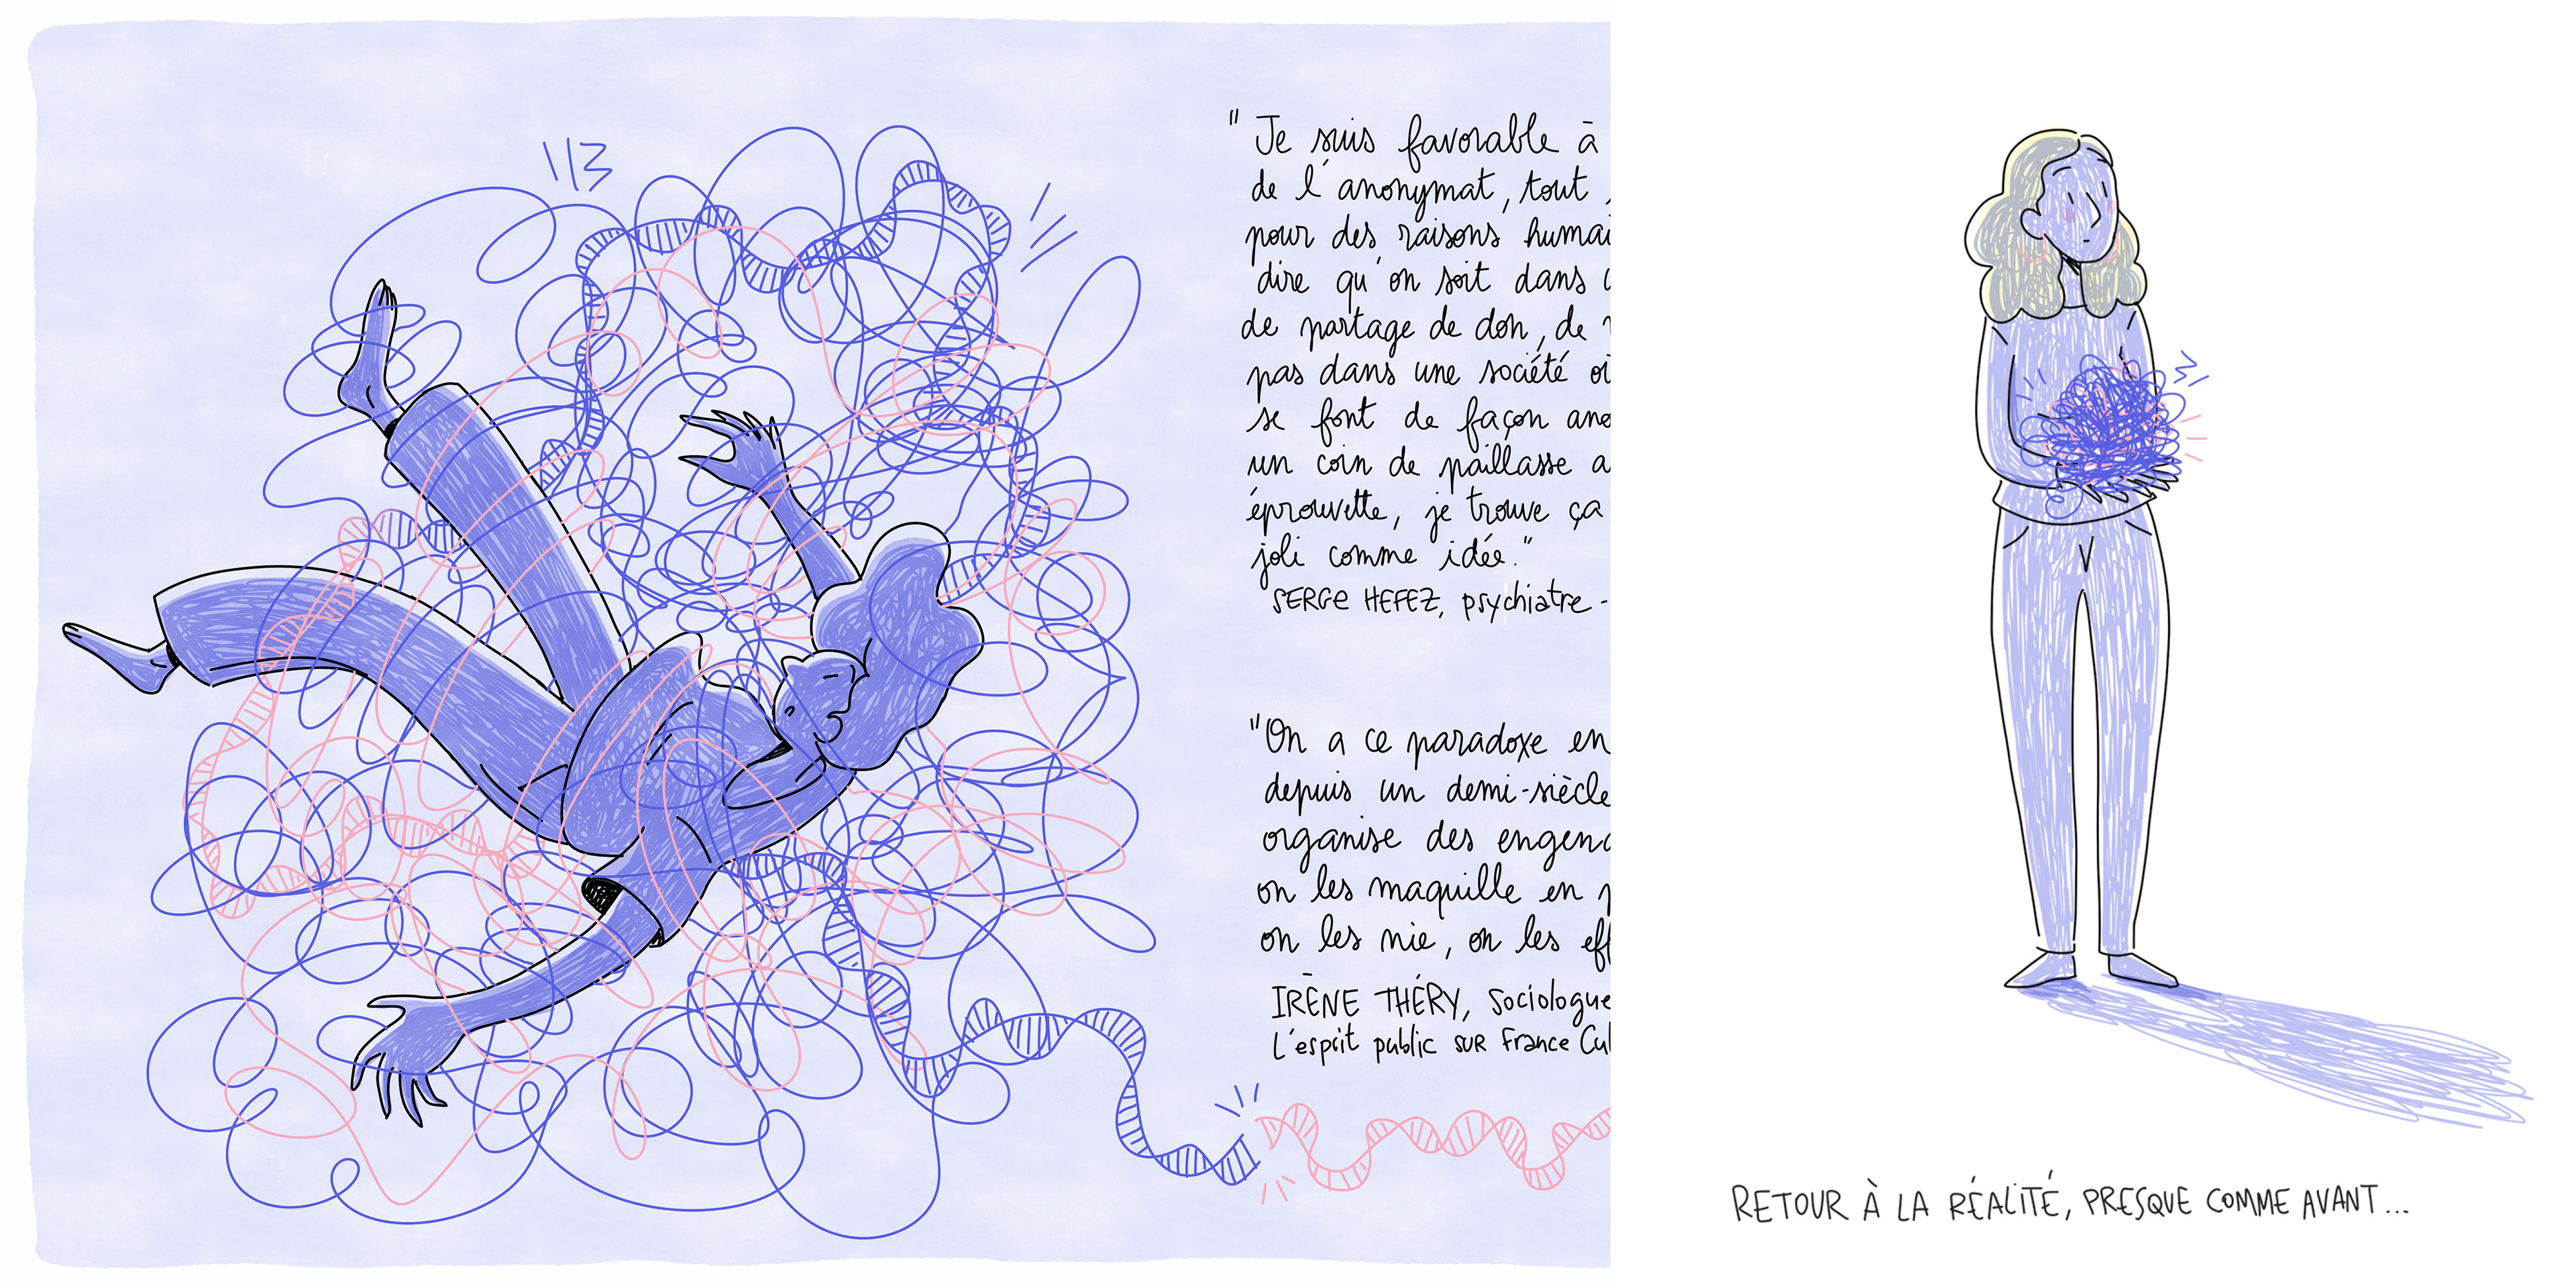 "Je suis favorable à
de l'anonymat, tout
pour des raisons humai
dire qu'on soit dans
de partage de don, de
pas dans une société où
se font de façon ano
un coin de paillasse a
éprouvette, je trouve ça
joli comme idée."
SERGE HEFEZ, psychiatre -
"On a ce paradoxe en
depuis un demi-siècle
organise des engend
on les maquille en
on les nie, on les eff
IRÈNE THÉRY, Sociologue
L'esprit public SUR France Cul
RETOUR À LA RÉALITÉ, PRESQUE COMME AVANT...